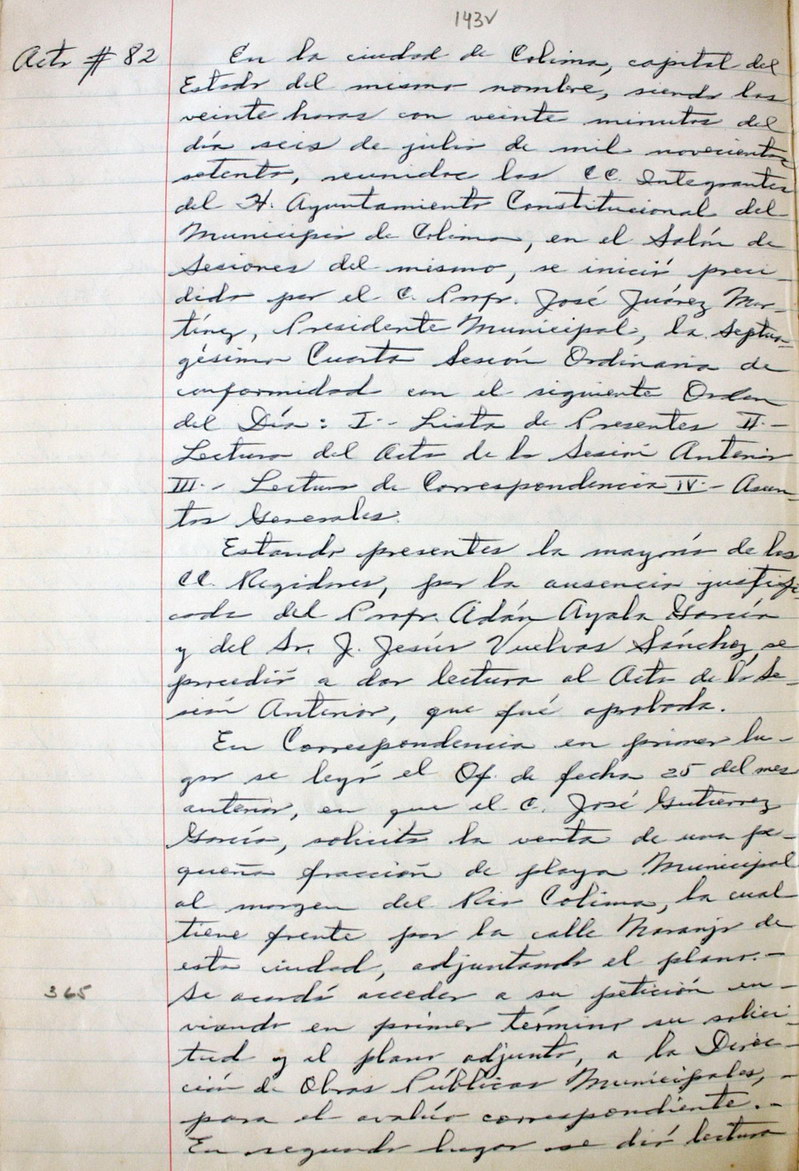 143v
Acta # 82
En la ciudad de Colima, capital del
Estado del mismo nombre, siendo las
veinte horas con veinte minutos del
día seis de julio de mil novecientos
setenta, reunidos los CC. Integrantes
del H. Ayuntamiento Constitucional del
Municipio de Colima, en el Salón de
Sesiones del mismo, se inició presi-
dida por el C. Profr. José Juárez Mar-
tínez, Presidente Municipal, la Septua-
gésima Cuarta Sesión Ordinaria de
conformidad con el siguiente Orden
del Día: I.- Lista de Presentes II.-
Lectura del Acta de la Sesión Anterior
III.- Lectura de Correspondencia IV.- Asun-
tos Generales.
Estando presentes la mayoría de los
CC. Regidores, por la ausencia justifi-
cada del Profr. Adán Ayala García
y del Sr. J. Jesús Vuelvas Sánchez, se
procedió a dar lectura al Acta de la Se-
sión Anterior, que fué aprobada.
En Correspondencia en primer lu-
gar se leyó el Of. de fecha 25 del mes
anterior, en que el C. José Gutierrez
García, solicita la venta de una pe-
queña fracción de playa Municipal
al margen del Rio Colima, la cual
tiene frente por la calle Naranjo de
esta ciudad, adjuntando el plano.-
365
Se acordó acceder a su petición en-
viando en primer término su solici-
tud y el plano adjunto, a la Direc-
ción de Obras Públicas Municipales,-
para el avalúo correspondiente.-
En segundo lugar se dió lectura